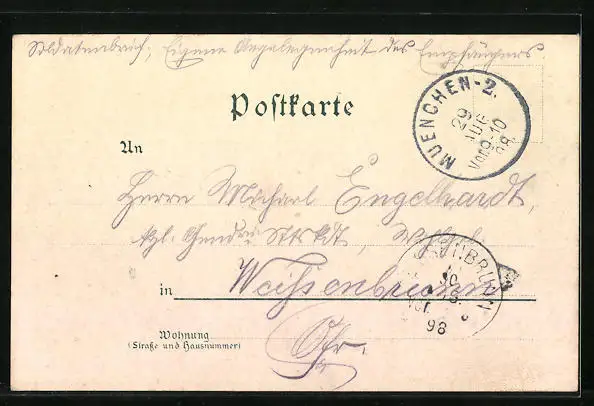 Soldatenbrief, Eigene Angelegenheit des Empfängers.
Postkarte
MUENCHEN-2.
29
AUG
Vor.9-10
98
An
Herrn Michael Engelhardt,
kgl.
in Weissenbrunn
98
Wohnung
(Straße und Hausnummer)
Ofr.